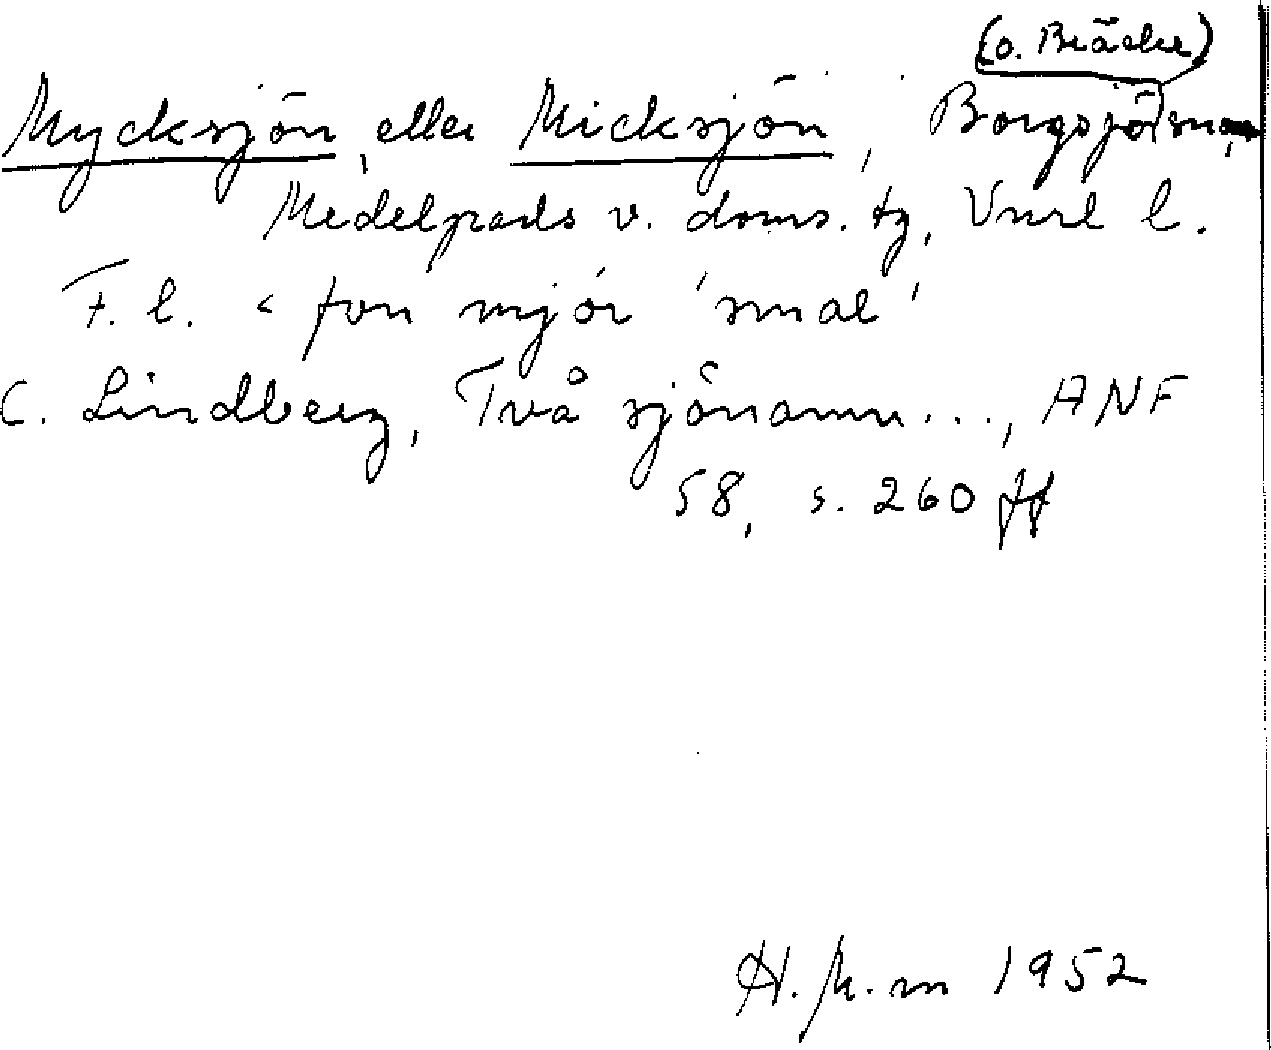 (o. Bräcke)
Mycksjön, eller Micksjön, Borgsjö sn,
Medelpads v. doms. tg, Vnrl l.
F. l. < fvn mjór 'smal'
C. Lindberg, Två sjönamn..., ANF
58, s. 260 ff
H. M. m 1952